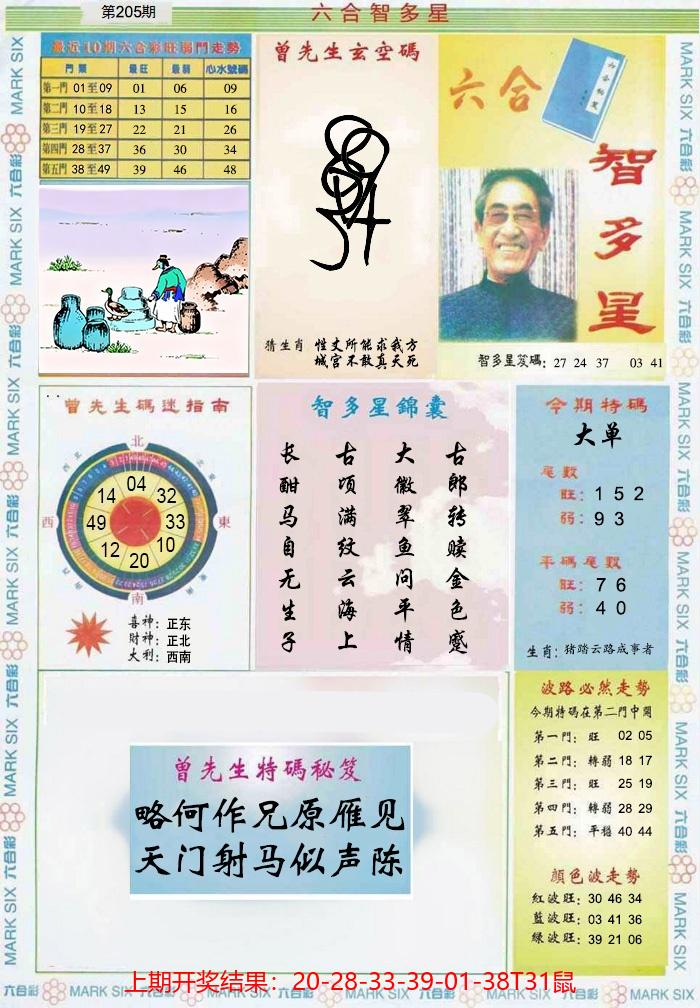 第205期
六合智多星
最近10期六合彩旺弱門走勢
門類 最旺 最弱 心水號碼
第一門 01至09 01 06 09
第二門 10至18 13 15 16
第三門 19至27 22 21 26
第四門 28至37 36 30 34
第五門 38至49 39 46 48
曾先生玄空碼
猜生肖 性丈所能求我方
城宫不敢真天死
六合
六合秘笈
智多星
智多星笈碼: 27 24 37 03 41
曾先生碼迷指南
北
東北
東
南
西
西北
04
32
33
10
20
12
49
14
喜神: 正东
財神: 正北
大利: 西南
智多星錦囊
古郎转赎金色蹙
大徽翠鱼问平情
古顷满纹云海上
长酣马自无生子
今期特碼
大单
尾數
旺: 1 5 2
弱: 9 3
平碼尾數
旺: 7 6
弱: 4 0
生肖: 猪踏云路成事者
曾先生特碼秘笈
略何作兄原雁见
天门射马似声陈
波路必然走勢
今期特碼在第二門中開
第一門: 旺 02 05
第二門: 轉弱 18 17
第三門: 旺 25 19
第四門: 轉弱 28 29
第五門: 平穩 40 44
顏色波走勢
紅波旺: 30 46 34
藍波旺: 03 41 36
綠波旺: 39 21 06
上期开奖结果：20-28-33-39-01-38T31鼠
MARK SIX 六合彩